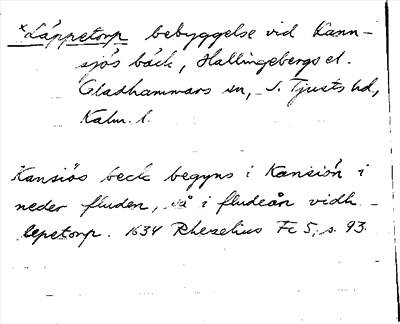 *Läppetorp bebyggelse vid Kann-
sjös bäck, Hallingebergs el.
Gladhammars sn, S. Tjusts hd,
Kalm. l.
Kansiös beck begyns i Kansiön i
neder fluden, så i fludeån vidh
lepetorp. 1634 Rhezelius Fc 5, s. 93.